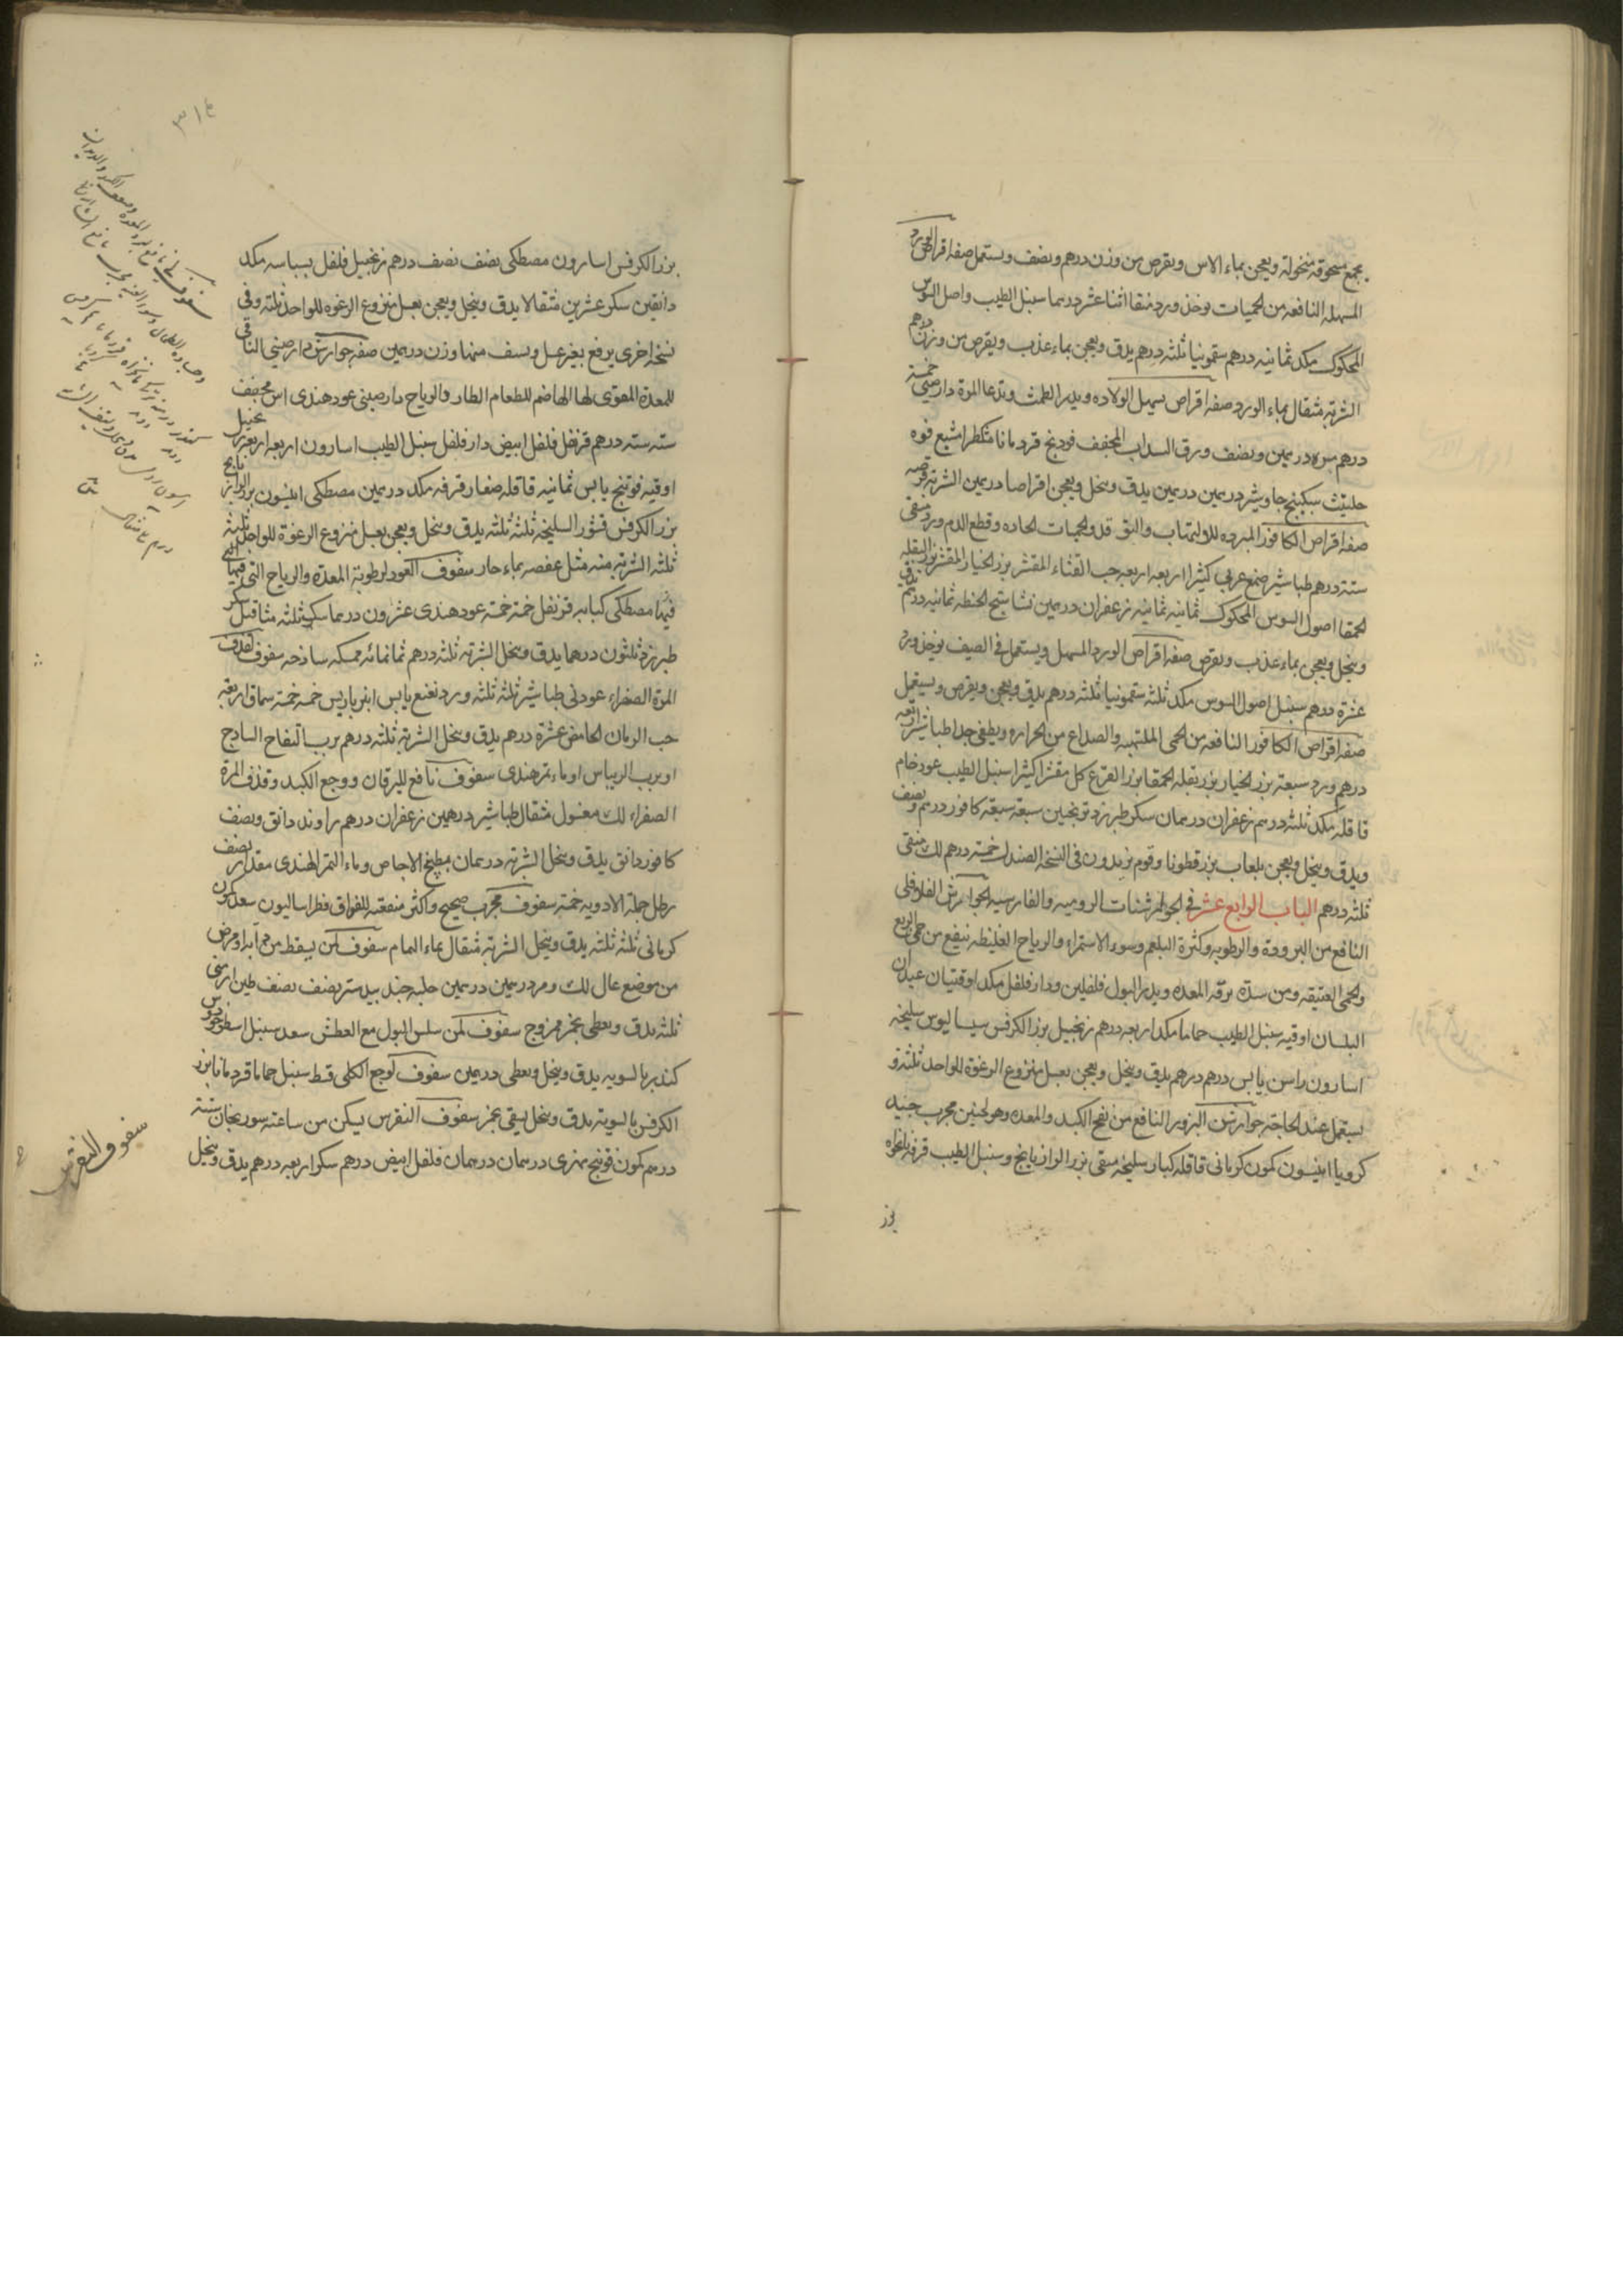 يجمع مسحوقه منخولة ويعجن بماء الاس ويقرص من وزن درهم ونصف ويستعمل صفه اقراص الورد
المسهله النافعه من الحميات يوخذ ورد منقا اثنا عشر درهما سنبل الطيب واصل السوس
المحكوك مكد ثمانيه درهم سقمونيا ثلثه درهم يدق ويعجن بماء عذب ويقرص من وزن درهم
الشربة مثقال بماء الورد صفه اقراص يسهل الولاده ويدر الطمث وتدعا المرة دارصيني خمسة
درهم مر درهمين ونصف ورق السداب المجفف فودنج قردمانا مشكطرامشيع فوه
حلتيت سكبينج جاوشير درهمين درهمين يدق وينخل ويعجن اقراصا درهمين الشربة قرصه
صفه اقراص الكافور المبرده للالتهاب والحميات الحاده وقطع الدم ورد منقى
ستة درهم طباشير صمغ عربي كثيرا اربعه اربعه حب القثاء المقشر بزر الخيار المقشر بزر البقله
الحمقا اصول السوس المحكوك ثمانيه ثمانيه زعفران درهمين نشاستج الحنطه ثمانيه درهم يدق
وينخل ويعجن بماء عذب ويقرص صفه اقراص الورد المسهل ويستعمل في الصيف يوخذ ورد
عشرة درهم سنبل اصول السوس مكد ثلثه سقمونيا ثلثه درهم يدق ويعجن ويقرص ويستعمل
صفه اقراص الكافور النافعه من الحمى الملتهبه والصداع من الحراره ويطفي جدا طباشير اربعه
درهم ورد سبعة بزر الخيار بزر بقله الحمقا بزر القرع كل مقشر كثيرا سنبل الطيب عود خام
قاقله مكد ثلثه درهم زعفران درهمان سكر طبرزد ترنجبين سبعة سبعة كافور درهم ونصف
ويدق وينخل ويعجن بلعاب بزر قطونا وقوم يزيدون في النسخه الصندل خمسة درهم لك منقى
ثلثه درهم الباب الرابع عشر في الجوارشنات الروميه والفارسيه الجوارش الفلافلي
النافع من البرودة والرطوبه وكثرة البلغم وسوء الاستمراء والرياح الغليظه ينفع من حمى الربع
والحمى العتيقه ومن سدة المعده ويدر البول فلفلين ودار فلفل مكد اوقتيان عيدان
البلسان اوقيه سنبل الطيب حماما مكد اربعه درهم زنجبيل بزر الكرفس سيساليوس سليخه
اسارون راسن يابس درهم درهم يدق وينخل ويعجن بعسل منزوع الرغوة للواحد ثلثه و
يستعمل عند الحاجة جوارشن البزور النافع من نفخ الكبد والمعده وهو لحنين مجرب جيد
كرويا انيسون كمون كرماني قاقله كبار سليخه منقى بزر الرازيانج وسنبل الطيب قرفه نانخواه
بزر
٣١٤
بزر الكرفس اسارون مصطكى نصف نصف درهم زنجبيل فلفل بسباسه مكد
دانقين سكر عشرين مثقالا يدق وينخل ويعجن بعسل منزوع الرغوه للواحد ثلثه وفي
نسخه اخرى يرفع بغير عسل ويسف منها وزن درهمين صفه جوارش دارصيني النافع
للمعدة المقوى لها الهاضم للطعام الطارد الرياح دارصيني عود هندى اس مجفف
سته سته درهم قرنفل فلفل ابيض دار فلفل سنبل الطيب اسارون اربعه اربعه زنجبيل
اوقيه فوتنج يابس ثمانيه قاقله صغار قرفه مكد درهمين مصطكى انيسون بزر الرازيانج
بزر الكرفس قشور السليخه ثلثه ثلثه يدق وينخل ويعجن بعسل منزوع الرغوة للواحد ثلثة
ثلثه الشربة منه مثل عفصه بماء حار سفوف العود لرطوبة المعدة والرياح التى
فيها مصطكى كبابه قرنفل خمسة خمسة عود هندى عشرون درهما سك ثلثه مثاقيل سكر
طبرزد ثلثون درهما يدق وينخل الشربة ثلثه درهم سفوف لقذف
المرة الصفراء عود ني طباشير ثلثه ثلثه ورد نعنع يابس انبرباريس خمسة خمسة سماق اربعة
حب الرمان الحامض عشرة درهم يدق وينخل الشربة ثلثه درهم برب التفاح الساذج
او برب الريباس او ماء تمر هندى سفوف نافع لليرقان ووجع الكبد وقذف المرة
الصفراء لك مغسول مثقال طباشير درهمين زعفران درهم راوند دانق ونصف
كافور دانق يدق وينخل الشربة درهمان بطبيخ الاجاص وماء التمر الهندى مقدار نصف
رطل جملة الادويه خمسة سفوف مجرب صحيح واكثر منفعته للفواق فطراساليون سعد كمون
كرماني ثلثه ثلثه يدق وينخل الشربة مثقال بماء النمام سفوف لمن يسقط من
من موضع عال لك ومر درهمين درهمين حلبه جندبيدستر نصف نصف طين ارمني
ثلثه يدق ويعطى بخمر ممزوج سفوف لمن سلس البول مع العطش سعد سنبل اسطوخودوس
كندر بالسويه يدق وينخل ويعطى درهمين سفوف لوجع الكلى قسط سنبل حماما قردمانا بزر
الكرفس بالسوية يدق وينخل يسقي بخمر سفوف النقرس يسكن من ساعته سورنجان ستة
درهم كمون فوتنج نهري درهمان درهمان فلفل ابيض درهم سكر اربعه درهم يدق وينخل
سفوف النقرس